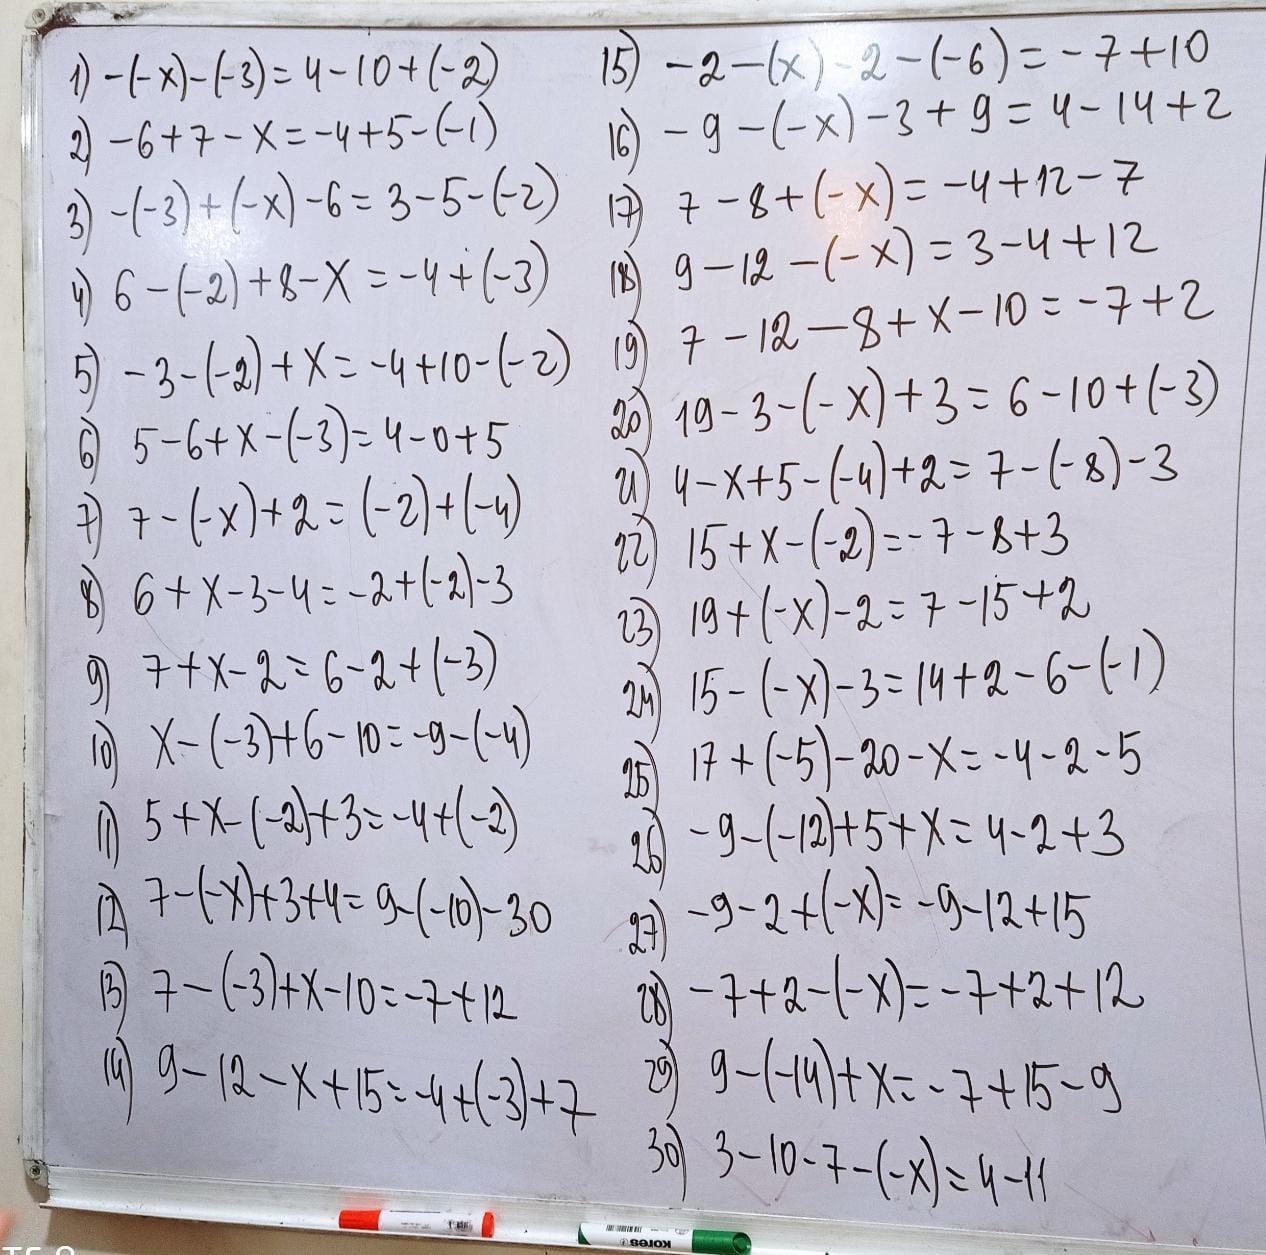 1) -(-x)-(-3)=4-10+(-2)
2) -6+7-x=-4+5-(-1)
3) -(-3)+(-x)-6=3-5-(-2)
4) 6-(-2)+8-x=-4+(-3)
5) -3-(-2)+x=-4+10-(-2)
6) 5-6+x-(-3)=4-0+5
7) 7-(-x)+2=(-2)+(-4)
8) 6+x-3-4=-2+(-2)-3
9) 7+x-2=6-2+(-3)
10) x-(-3)+6-10=-9-(-4)
11) 5+x-(-2)+3=-4+(-2)
12) 7-(-x)+3+4=9-(-10)-30
13) 7-(-3)+x-10=-7+12
14) 9-12-x+15=-4+(-3)+7
15) -2-(x)-2-(-6)=-7+10
16) -9-(-x)-3+9=4-14+2
17) 7-8+(-x)=-4+12-7
18) 9-12-(-x)=3-4+12
19) 7-12-8+x-10=-7+2
20) 19-3-(-x)+3=6-10+(-3)
21) 4-x+5-(-4)+2=7-(-8)-3
22) 15+x-(-2)=-7-8+3
23) 19+(-x)-2=7-15+2
24) 15-(-x)-3=14+2-6-(-1)
25) 17+(-5)-20-x=-4-2-5
26) -9-(-12)+5+x=4-2+3
27) -9-2+(-x)=-9-12+15
28) -7+2-(-x)=-7+2+12
29) 9-(-14)+x=-7+15-9
30) 3-10-7-(-x)=4-11
kores